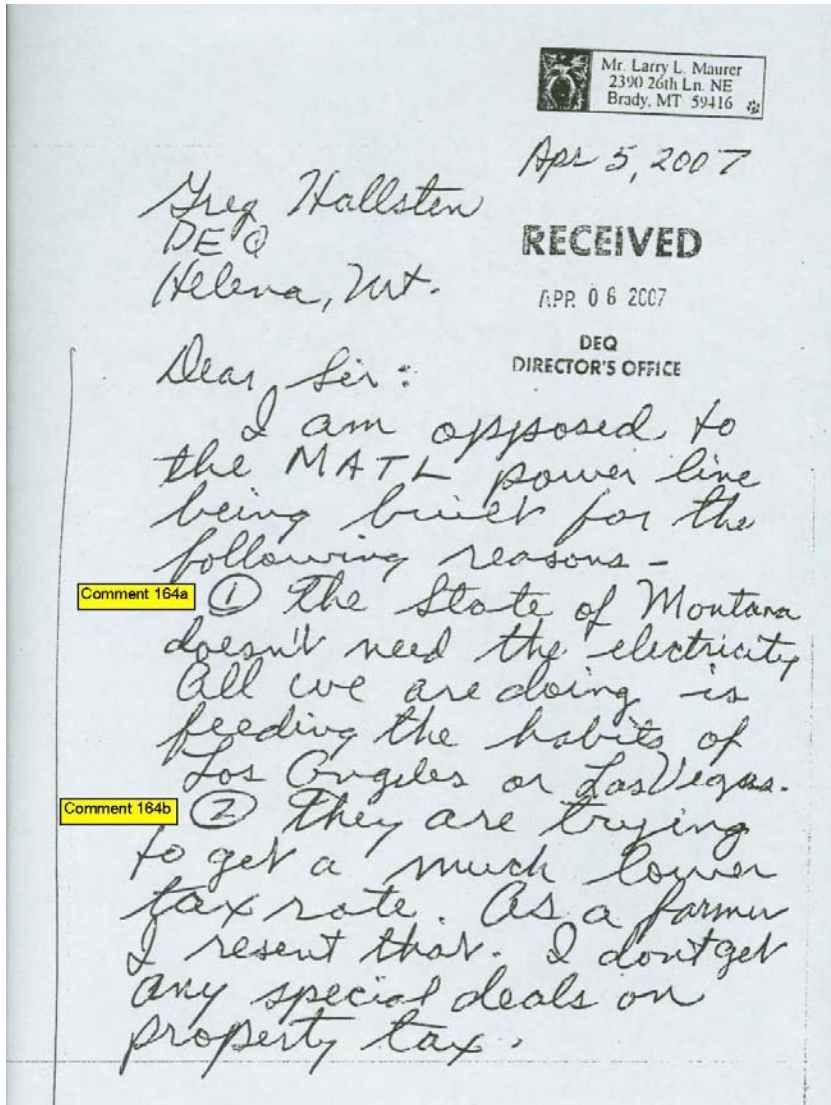 Mr. Larry L. Maurer
2390 26th Ln. NE
Brady, MT 59416
Apr 5, 2007
Greg Hallsten
DEQ
Helena, Mt.
RECEIVED
APR 06 2007
DEQ
DIRECTOR'S OFFICE
Dear Sir:
I am opposed to
the MATL power line
being built for the
following reasons -
Comment 164a
① The State of Montana
doesn't need the electricity
All we are doing is
feeding the habits of
Los Angeles or Las Vegas.
Comment 164b
② They are trying
to get a much lower
tax rate. As a farmer
I resent that. I dont get
any special deals on
property tax.